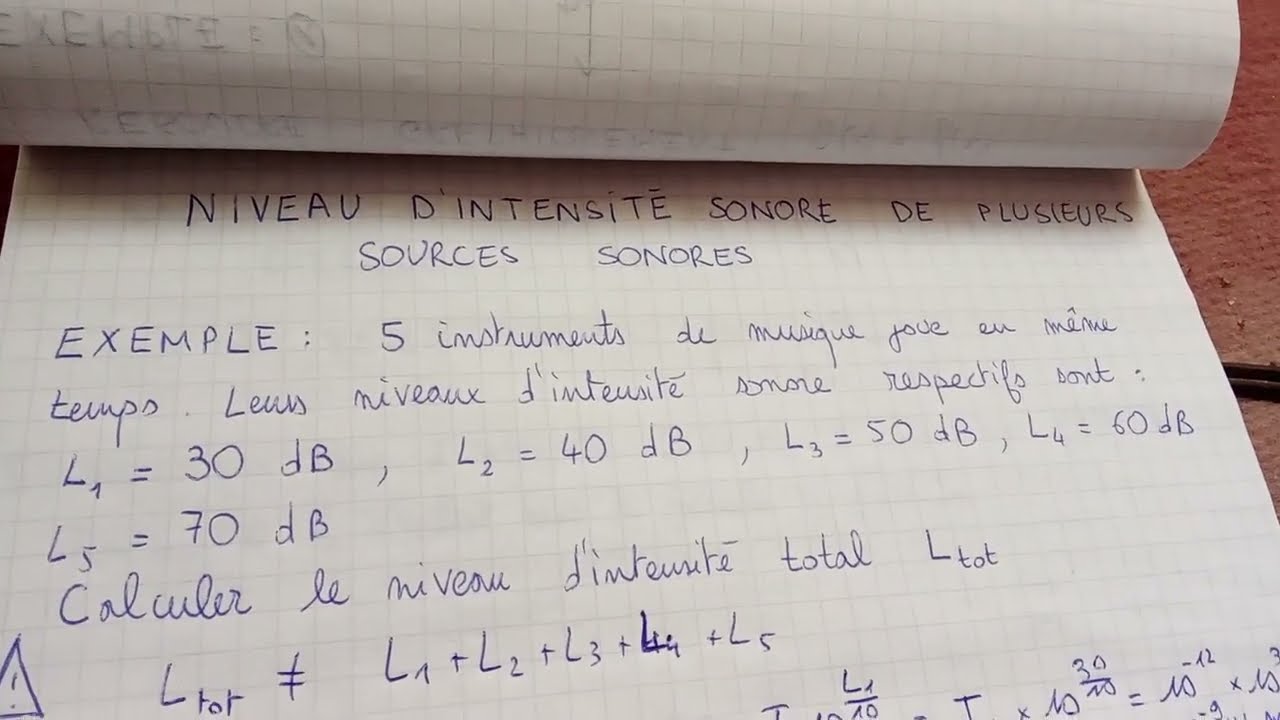 EXEMPLE :
NIVEAU D'INTENSITÉ SONORE DE PLUSIEURS
SOURCES SONORES
EXEMPLE : 5 instruments de musique joue en même
temps. Leurs niveaux d'intensité sonore respectifs sont :
L₁ = 30 dB , L₂ = 40 dB , L₃ = 50 dB , L₄ = 60 dB
L₅ = 70 dB
Calculer le niveau d'intensité total Ltot
! Ltot ≠ L₁ + L₂ + L₃ + L₄ + L₅
L₁/10 = I × 10^(30/10) = 10⁻¹² × 10³